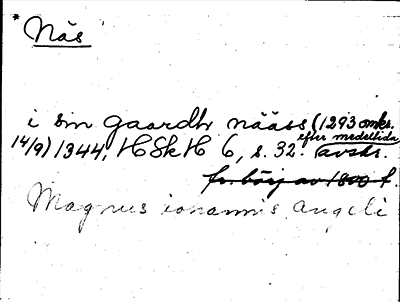 * Näs
i sin gaardh näåss (1293 omkr.
14/9) 1344, HSkH 6, s. 32. efter medeltida avskr.
fr. börj av 1800-t.
Magnus iohannis angeli